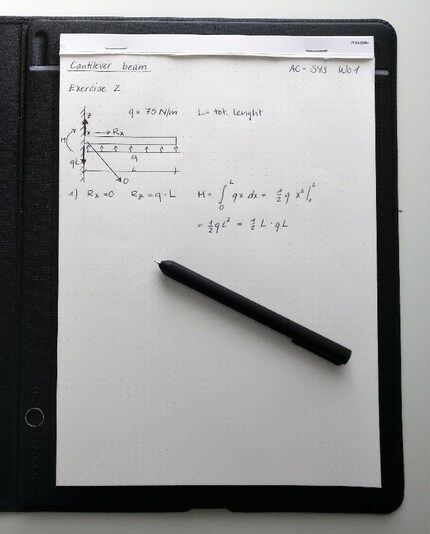 Cantilever beam
AC-3V3 W01
Exercise 2
q = 70 N/m L = tot. lenght
z
x Rx
M
qL
q
L
O
1) Rx = 0 Rz = q · L M = ∫₀ᴸ qx dx = ½ q x² |₀ᴸ
= ½qL² = ½ L · qL